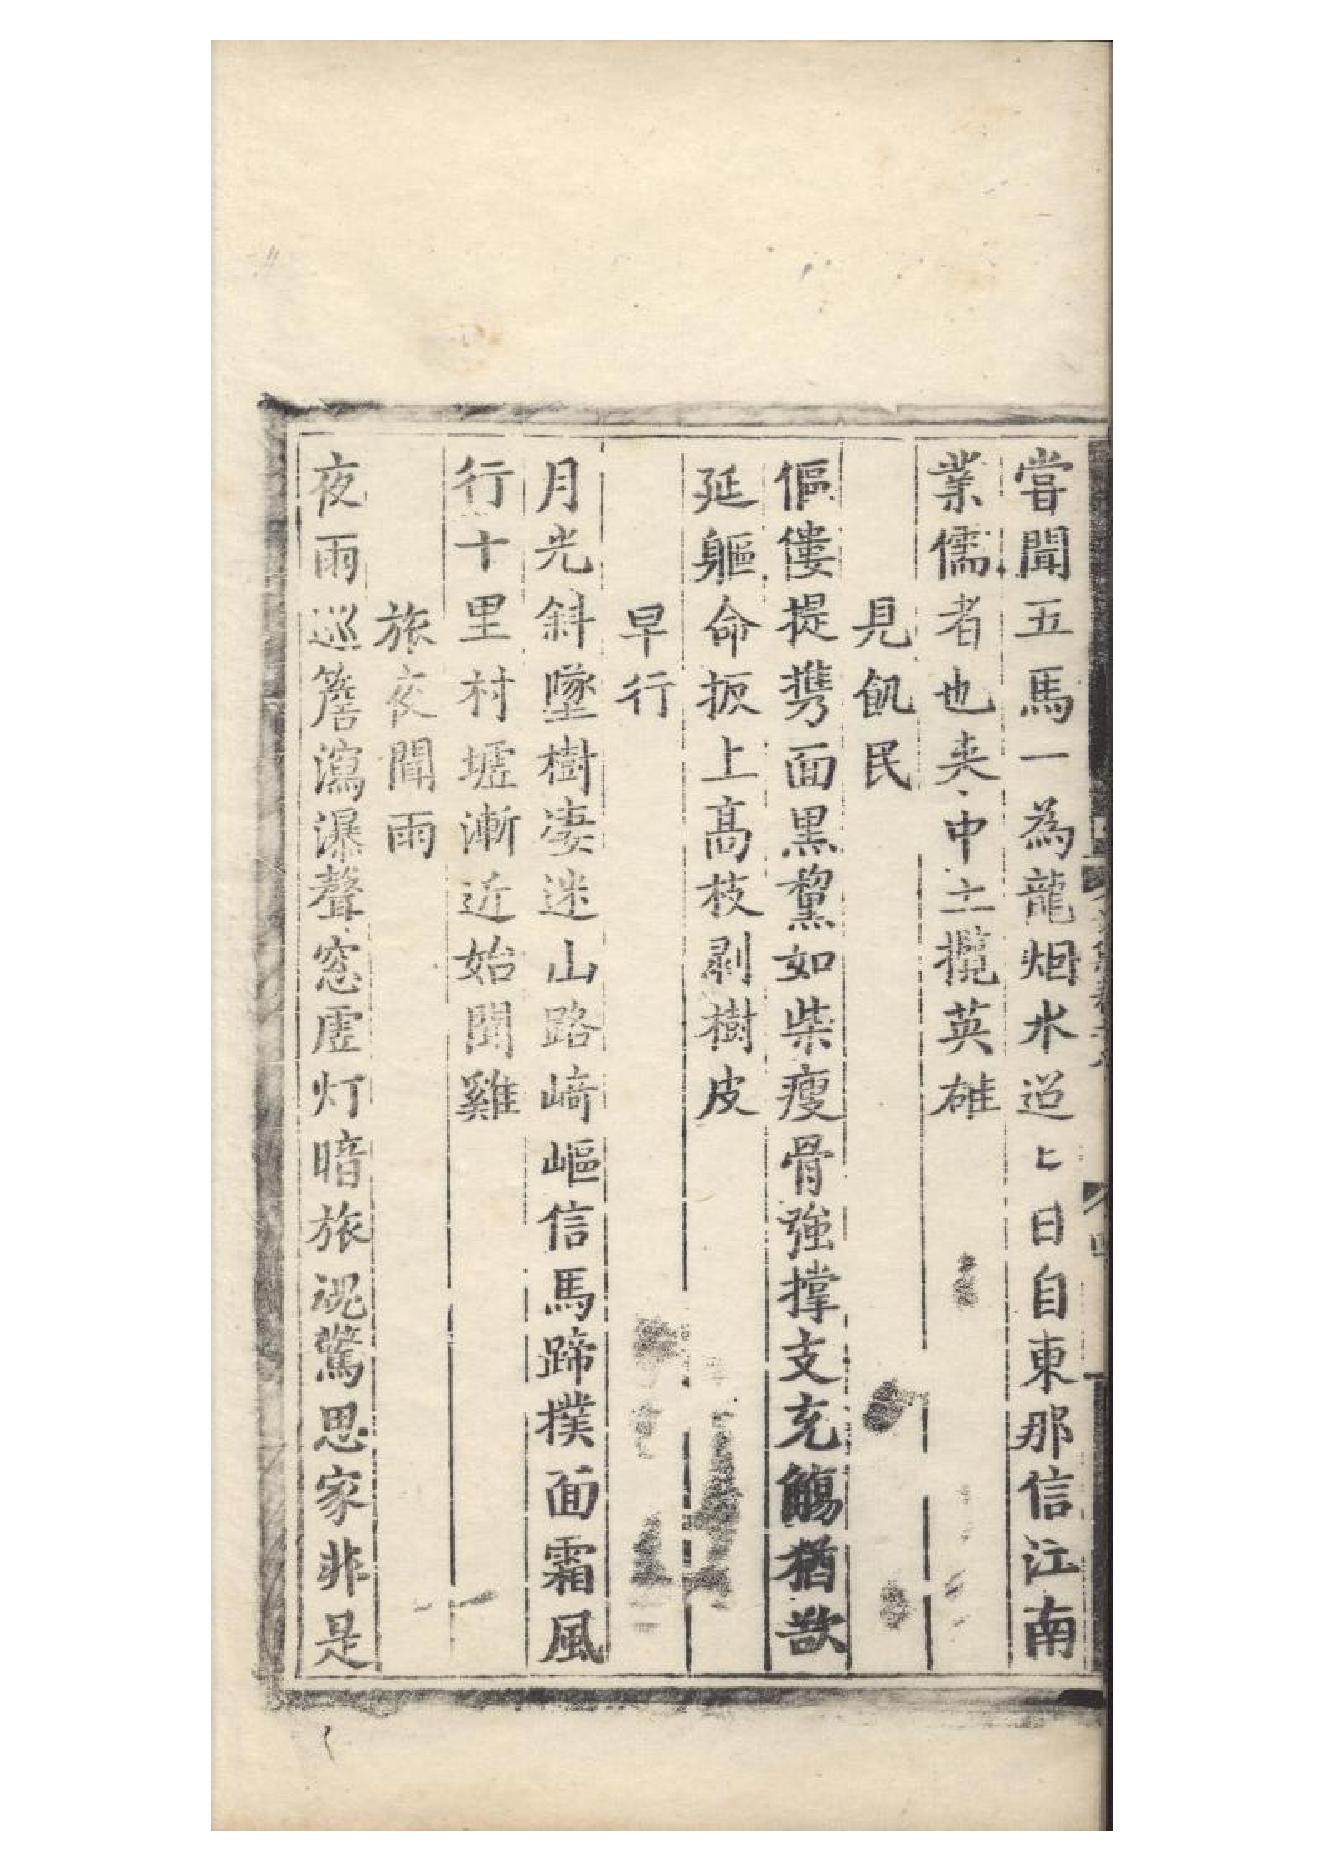 嘗聞五馬一為龍烟水迢〻日自東那信江南
業儒者也夹中土攬英雄
見飢民
傴僂提携面黒黧如柴瘦骨強撑支充觴猶歆
延軀命扳上髙枝剥樹皮
早行
月光斜墜樹凄迷山路﨑嶇信馬蹄撲面霜風
行十里村墟漸近始聞雞
旅夜聞雨
夜雨巡簷瀉瀑聲窓虚灯暗旅魂驚思家非是